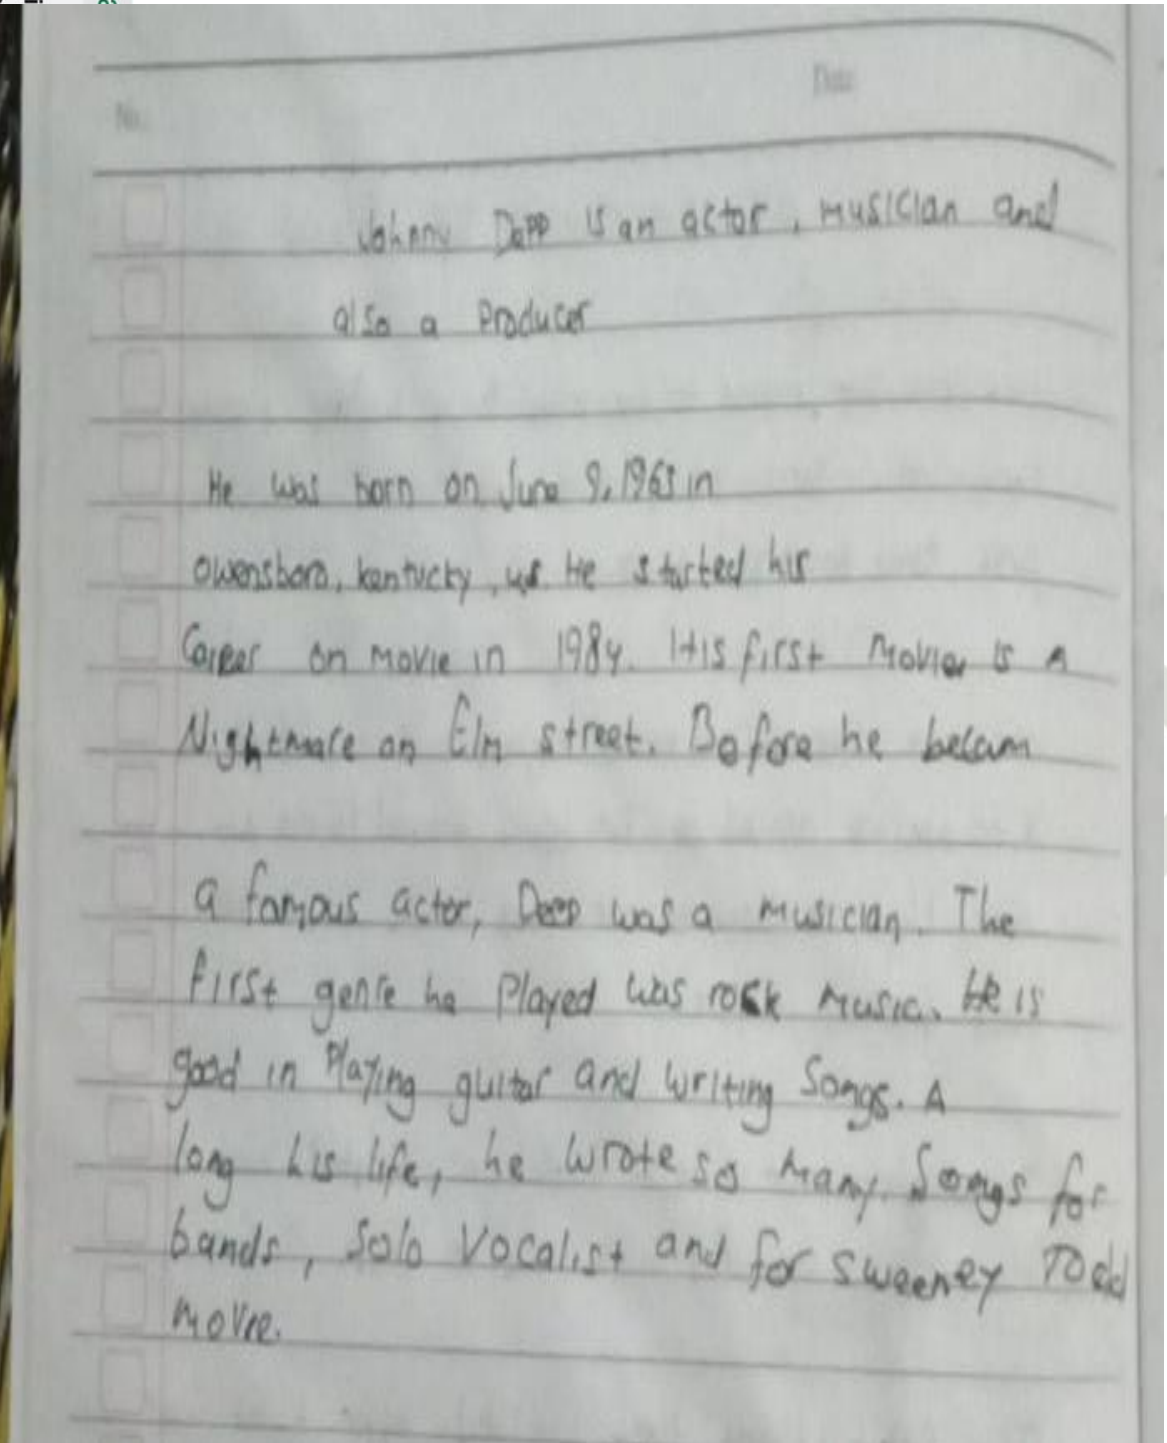 No.
Date
Johnny Depp is an actor, musician and
also a Producer
He was born on June 9, 1963 in
Owensboro, kentucky, us. He started his
Career on movie in 1984. His first Movie is A
Nightmare on Elm street. Before he becam
a famous actor, Deep was a musician. The
first genre he Played was rock Music. He is
good in Playing guitar and writing Songs. A
long his life, he wrote so many Songs for
bands, Solo Vocalist and for Sweeney Todd
movie.